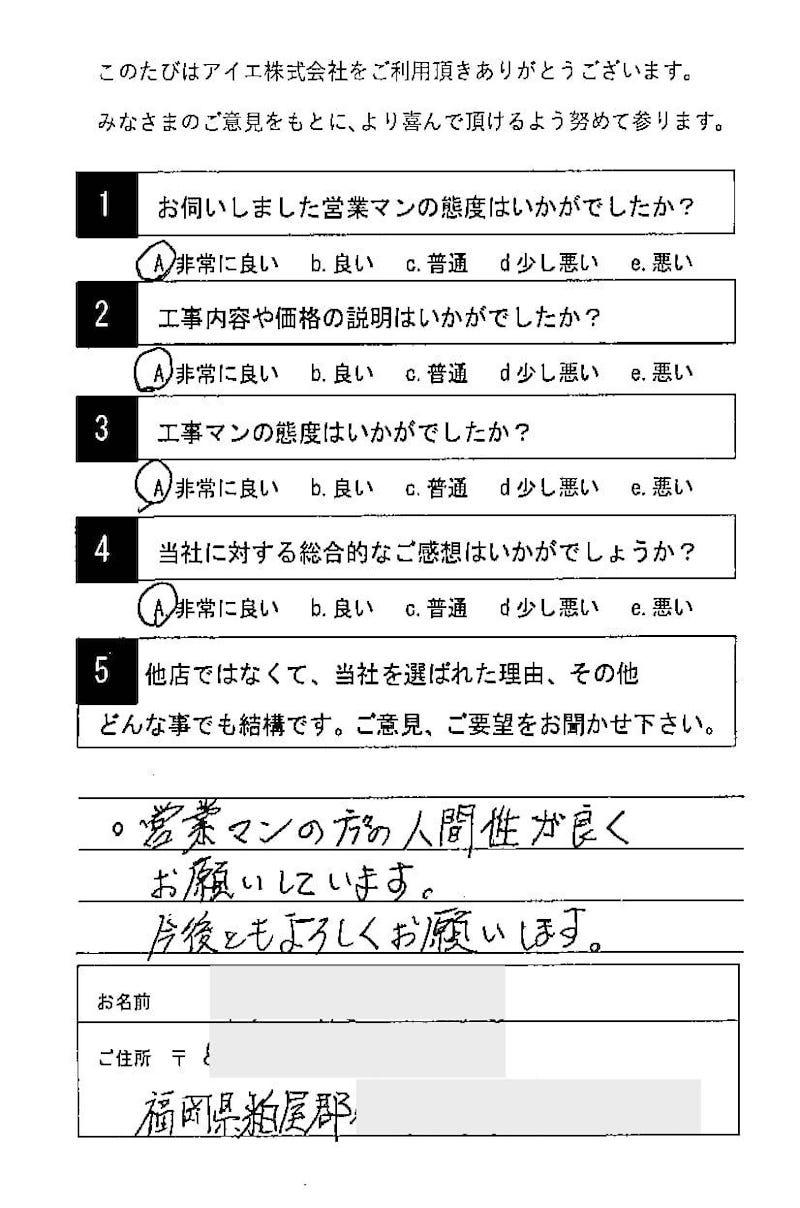 このたびはアイエ株式会社をご利用頂きありがとうございます。
みなさまのご意見をもとに、より喜んで頂けるよう努めて参ります。
1 お伺いしました営業マンの態度はいかがでしたか？
A 非常に良い b. 良い c. 普通 d 少し悪い e. 悪い
2 工事内容や価格の説明はいかがでしたか？
A 非常に良い b. 良い c. 普通 d 少し悪い e. 悪い
3 工事マンの態度はいかがでしたか？
A 非常に良い b. 良い c. 普通 d 少し悪い e. 悪い
4 当社に対する総合的なご感想はいかがでしょうか？
A. 非常に良い b. 良い c. 普通 d 少し悪い e. 悪い
5 他店ではなくて、当社を選ばれた理由、その他
どんな事でも結構です。ご意見、ご要望をお聞かせ下さい。
。営業マンの方の人間性が良く
お願いしています。
今後ともよろしくお願いします。
お名前
ご住所 〒
福岡県粕屋郡